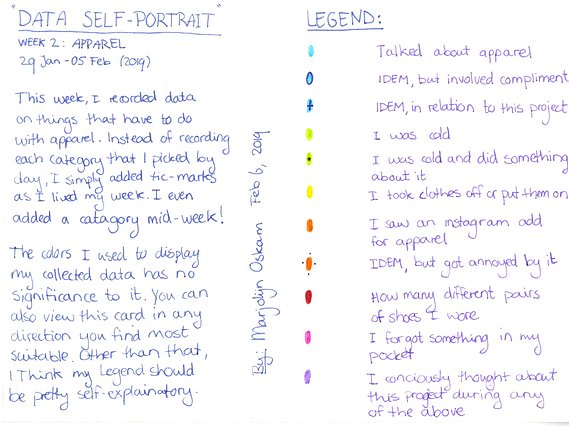 "DATA SELF-PORTRAIT"
WEEK 2: APPAREL
29 Jan - 05 Feb (2019)
This week, I recorded data
on things that have to do
with apparel. Instead of recording
each category that I picked by
day, I simply added tic-marks
as I lived my week. I even
added a catagory mid-week!
The colors I used to display
my collected data has no
significance to it. You can
also view this card in any
direction you find most
suitable. Other than that,
I think my Legend should
be pretty self-explainatory.
By: Marjolijn Oskam Feb 6, 2019
LEGEND:
Talked about apparel
IDEM, but involved compliment
IDEM, in relation to this project
I was cold
I was cold and did something
about it
I took clothes off or put them on
I saw an instagram add
for apparel
IDEM, but got annoyed by it
How many different pairs
of shoes I wore
I forgot something in my
pocket
I conciously thought about
this project during any
of the above